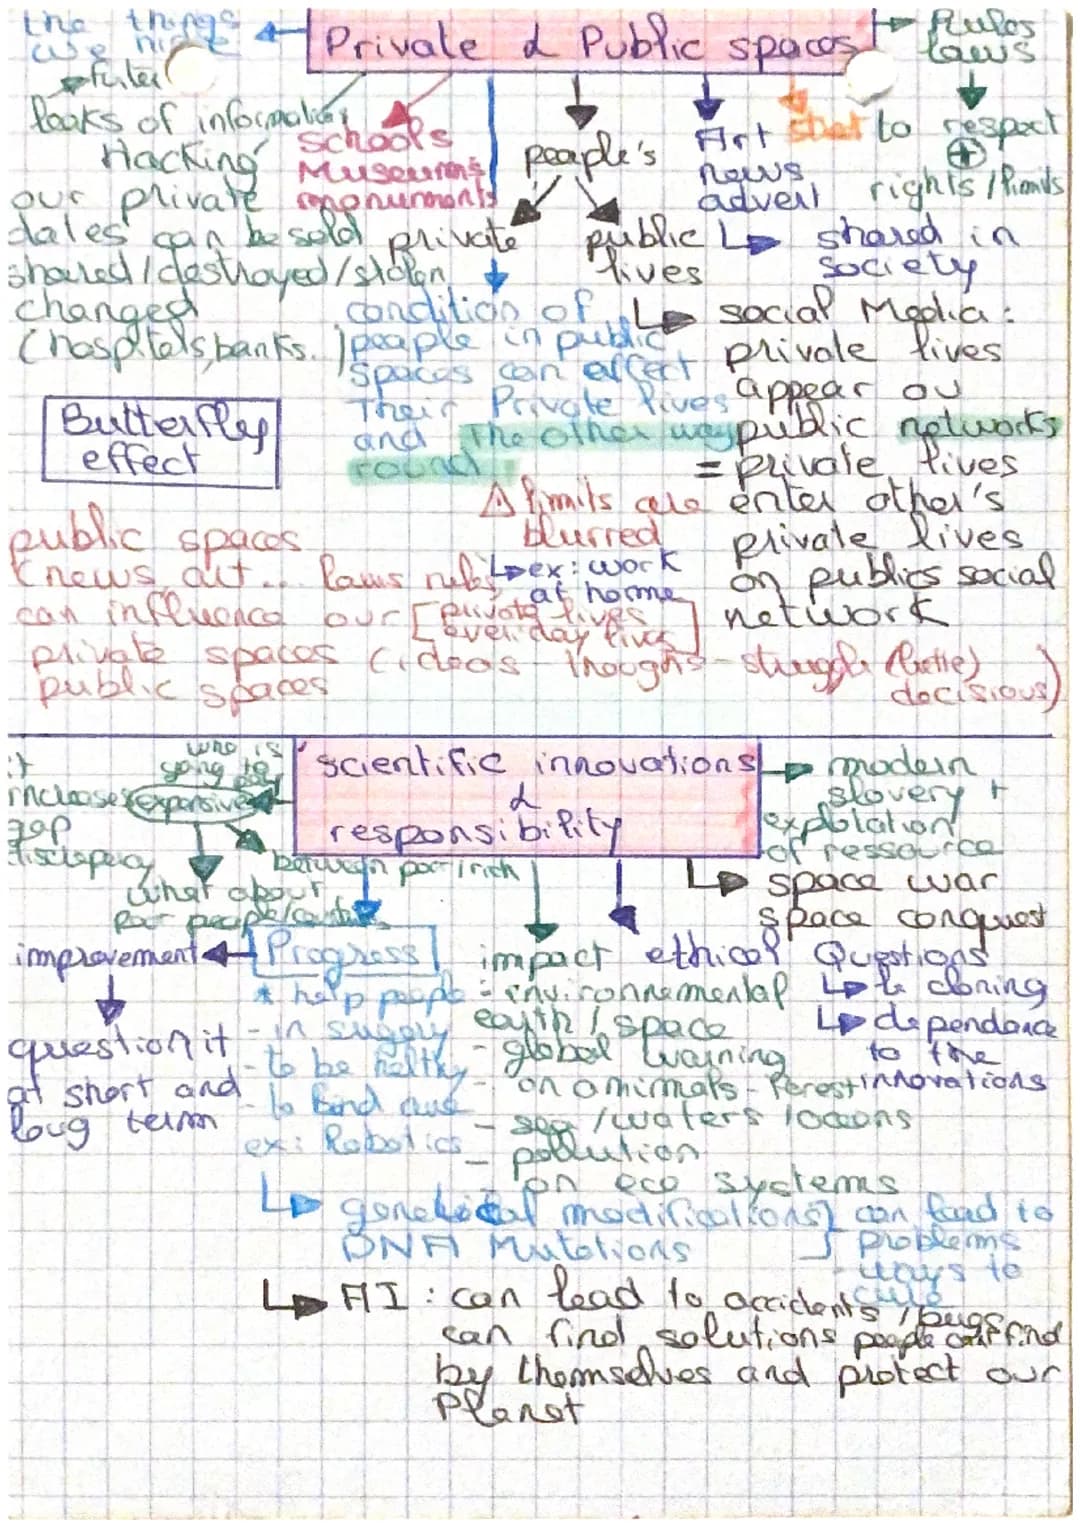 the things
we hide
Private & Public spaces
Rules
laws
leaks of information
Hacking
our private
dates can be sold
shared/destroyed/stolen
changed
(hospitals, banks.)
schools
Museums
monuments
people's
private
public
lives
Art
news
advert
to respect
+
rights/limits
shared in
society
condition of
people in public
spaces can affect
Their Private lives
and The other way
round
social Media:
private lives
appear ou
public networks
= private lives
enter other's
private lives
on publics social
network
Butterfly
effect
⚠ limits are
blurred
ex: work
at home
public spaces
(news, art... laws rules
can influence our [private lives
everiday lives]
private spaces (ideas - thoughs - struggle (battle)
public spaces decisious)
scientific innovations
&
responsibility
who is
going to
expansive
it
increases
gap
between poor/rich
what about
poor people/
modern
slavery +
explotation
of ressource
space war
space conquest
improvement
question it
at short and
long term
Progress
* help people
- in sugery
- to be healthy
- to find cure
ex: Robotics
impact
- environnemental
earth / space
- global warning
- on animals - Forest
- sea /waters /oceans
- pollution
- on eco systems
ethical Questions
to cloning
dependance
to the
innovations
genetical modifications] can lead to
DNA Mutations
problems
- ways to
cure
AI : can lead to accidents /bugs
can find solutions people can't find
by themselves and protect our
Planet